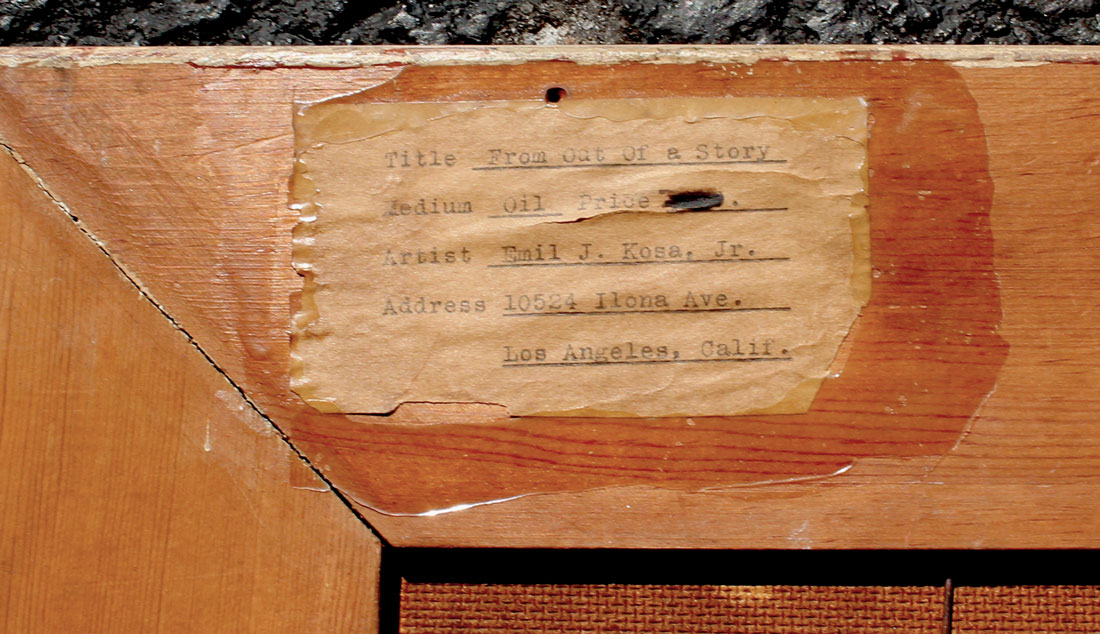 Title From Out Of a Story
Medium Oil Price .
Artist Emil J. Kosa, Jr.
Address 10524 Ilona Ave.
Los Angeles, Calif.